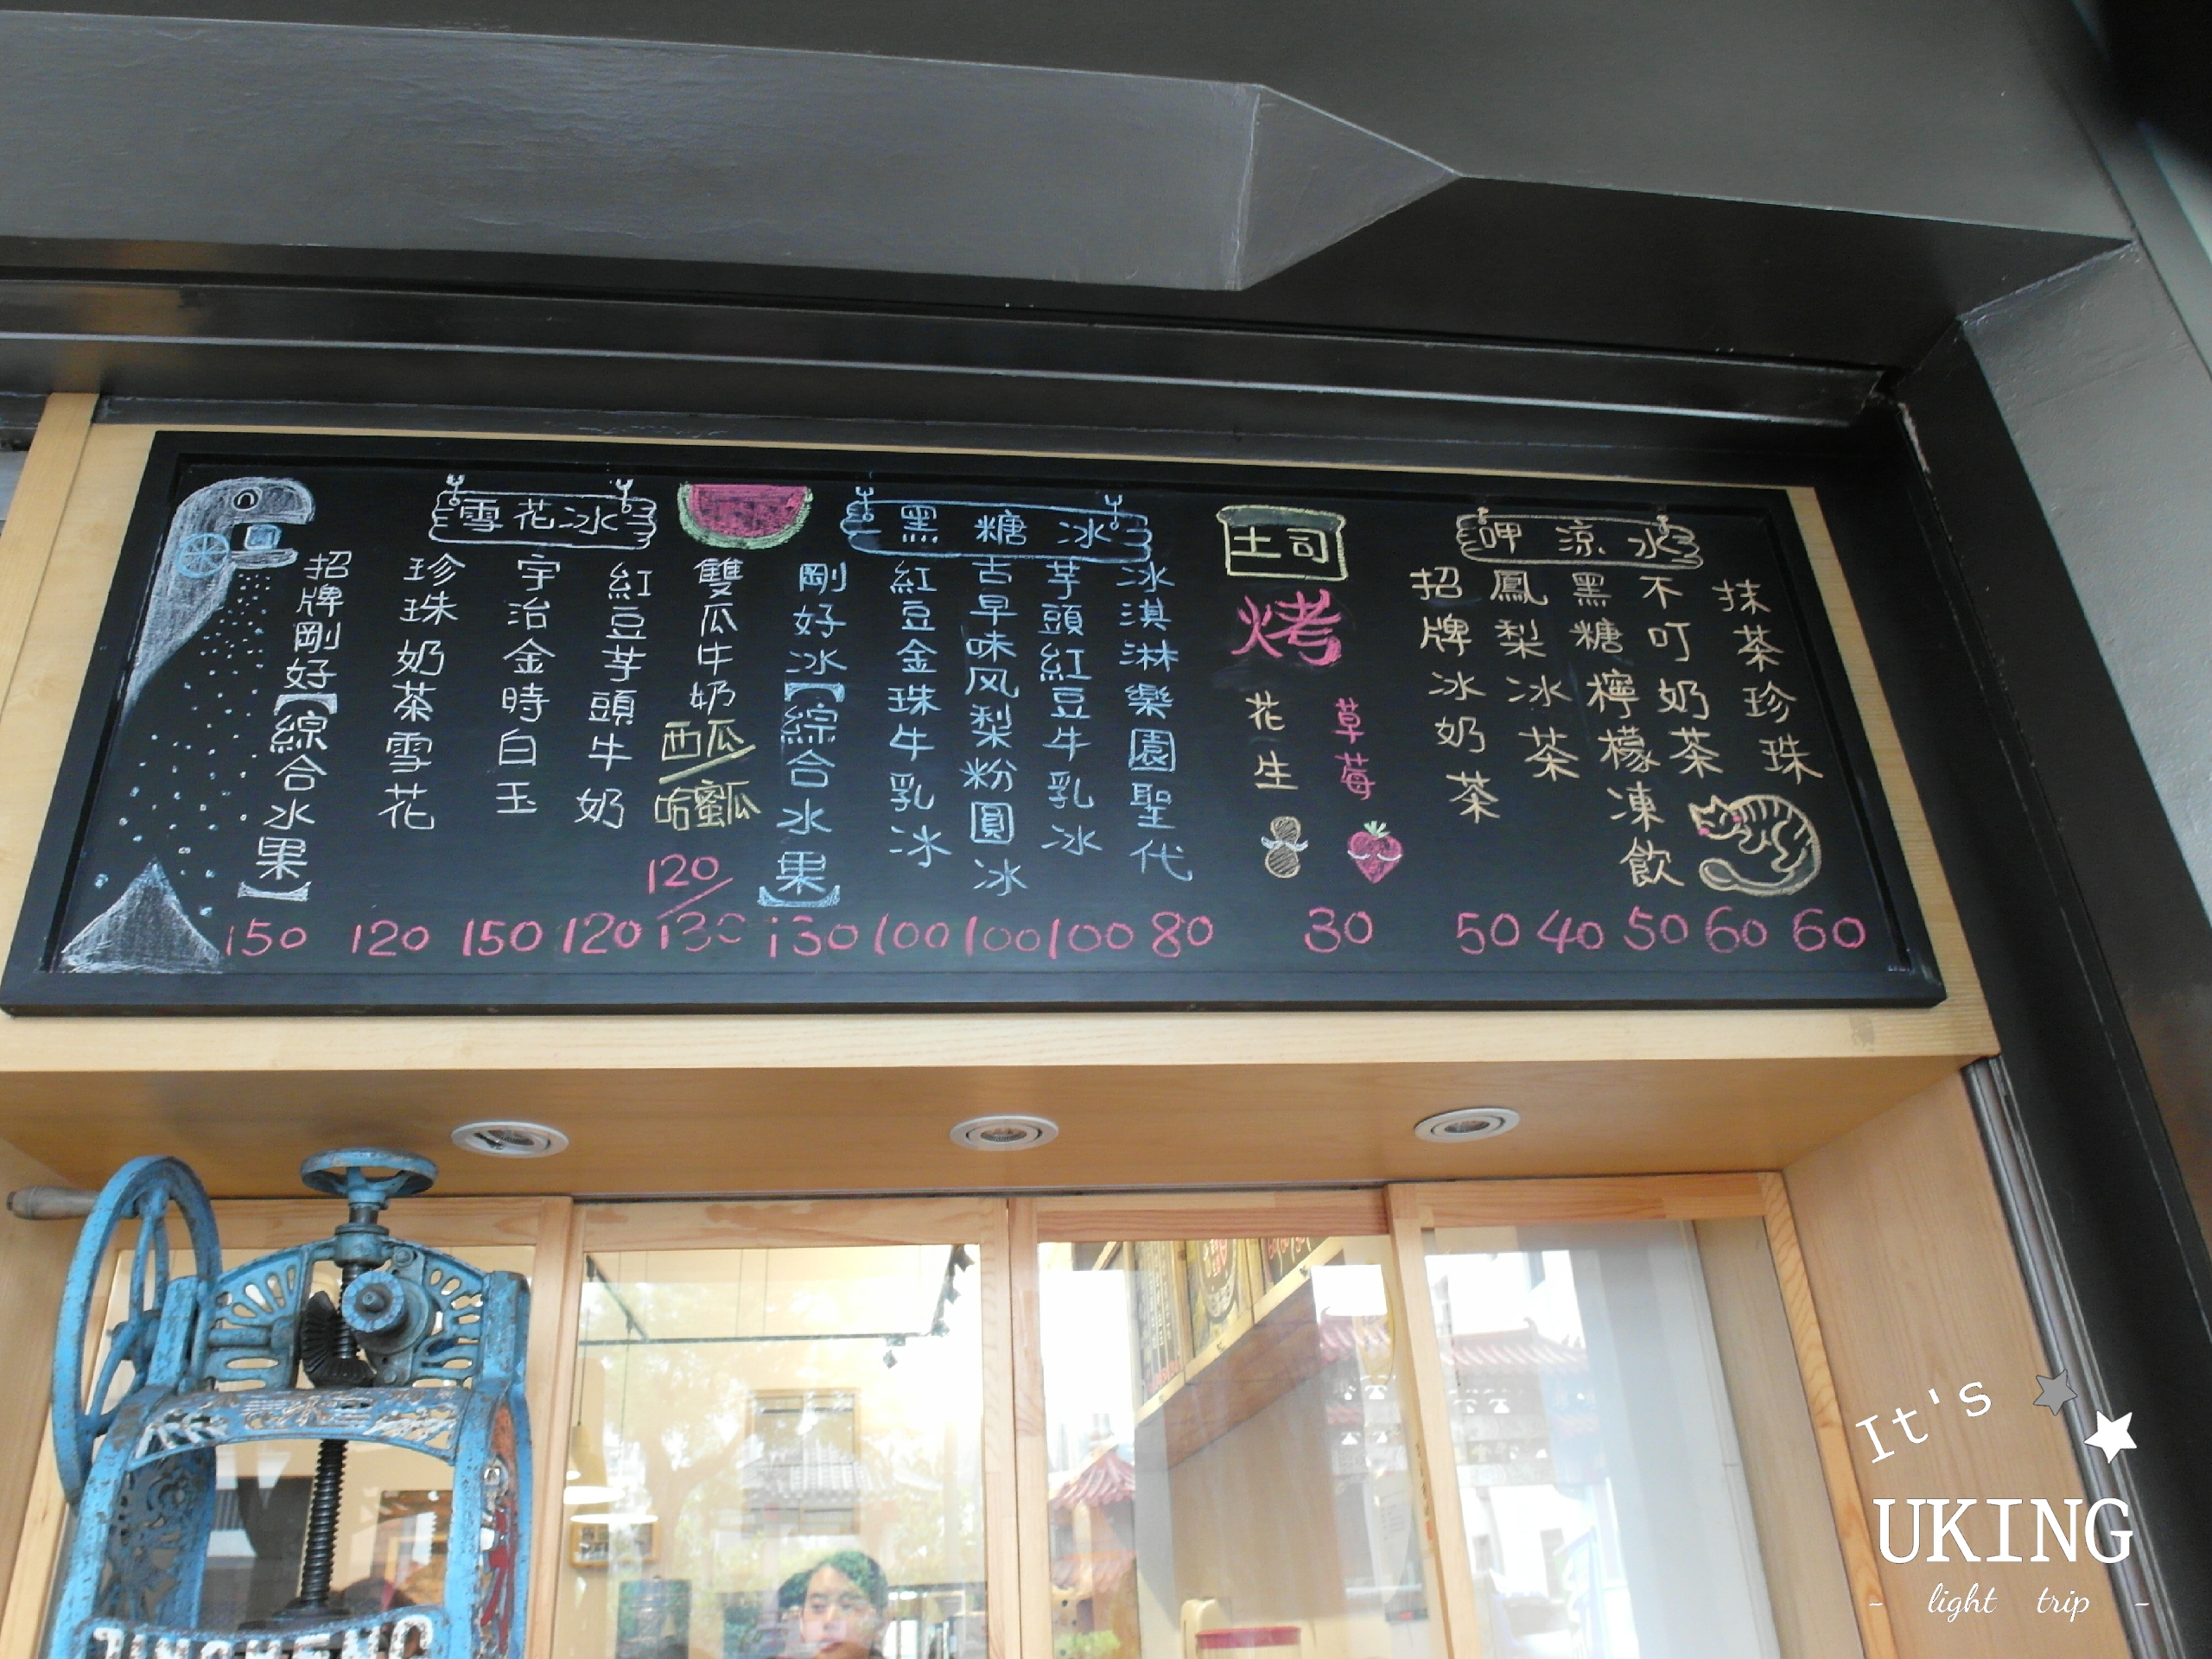 雪花冰
招牌剛好【綜合水果】
150
珍珠奶茶雪花
120
宇治金時白玉
150
紅豆芋頭牛奶
120
雙瓜牛奶
西瓜/哈蜜瓜
120/130
黑糖冰
剛好冰【綜合水果】
130
紅豆金珠牛乳冰
100
古早味风梨粉圓冰
100
芋頭紅豆牛乳冰
100
冰淇淋樂園聖代
80
土司
烤
花生
草莓
30
呷涼水
招牌冰奶茶
50
鳳梨冰茶
40
黑糖檸檬凍飲
50
不叮奶茶
60
抹茶珍珠
60
It's
UKING
- light trip -